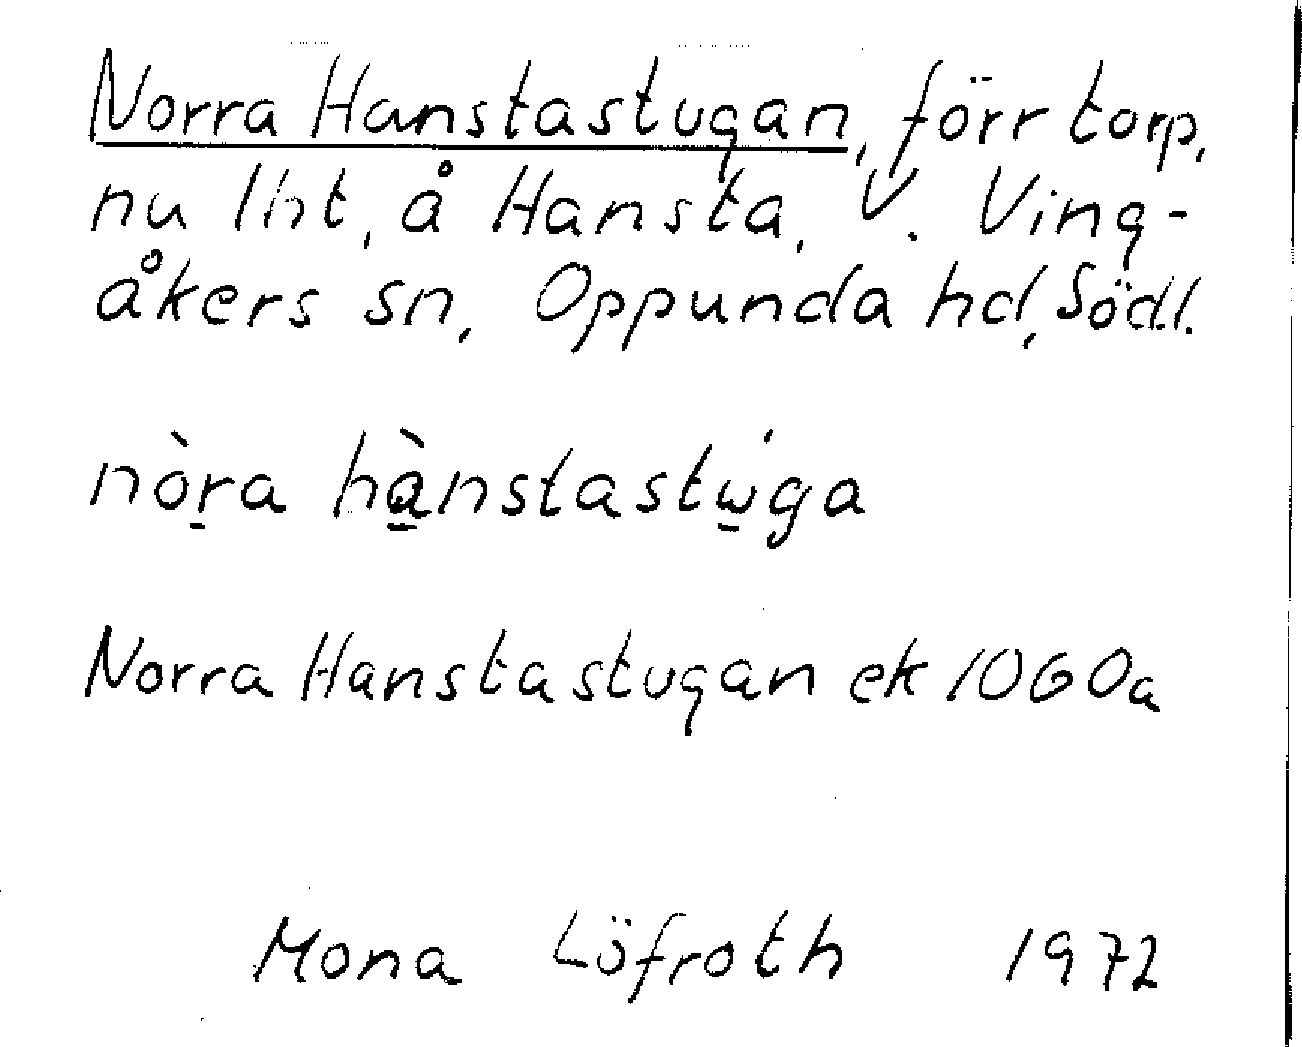 Norra Hanstastugan, förr torp,
nu lht, å Hansta, V. Ving-
åkers sn, Oppunda hd, Södl.
nòṟa hà̱nstastώ̱ga
Norra Hanstastugan ek 1060a
Mona Löfroth 1972